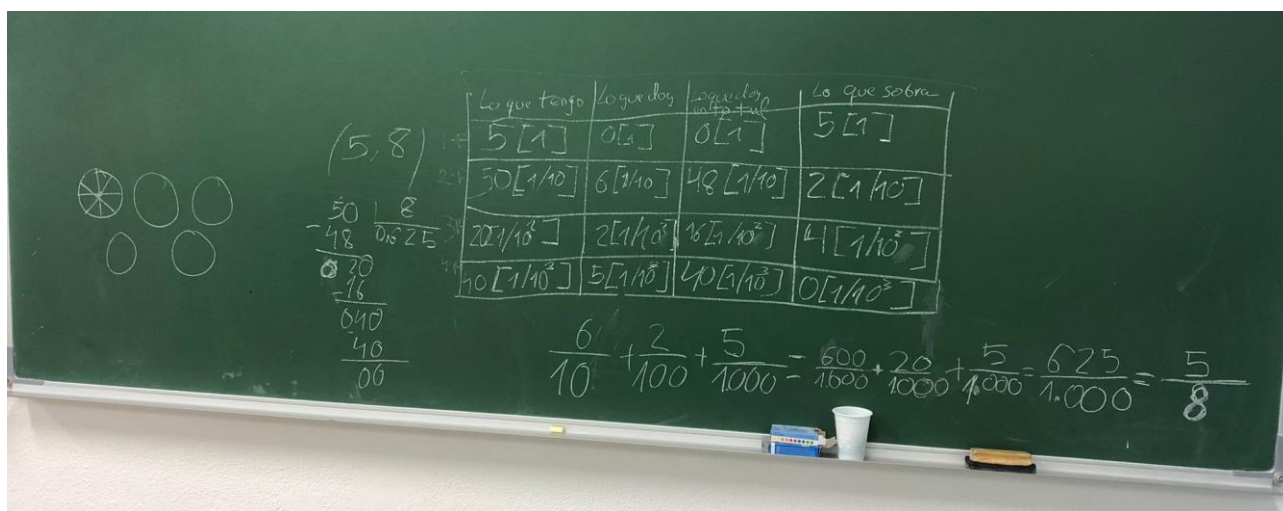 (5,8)
50 | 8
-48 0,625
020
-16
040
-40
00
Lo que tengo | Lo que doy | Lo que doy en total | Lo que sobra
5[1] | 0[1] | 0[1] | 5[1]
50[1/10] | 6[1/10] | 48[1/10] | 2[1/10]
20[1/10²] | 2[1/10²] | 16[1/10²] | 4[1/10²]
40[1/10³] | 5[1/10³] | 40[1/10³] | 0[1/10³]
6/10 + 2/100 + 5/1000 = 600/1.000 + 20/1000 + 5/1.000 = 625/1.000 = 5/8